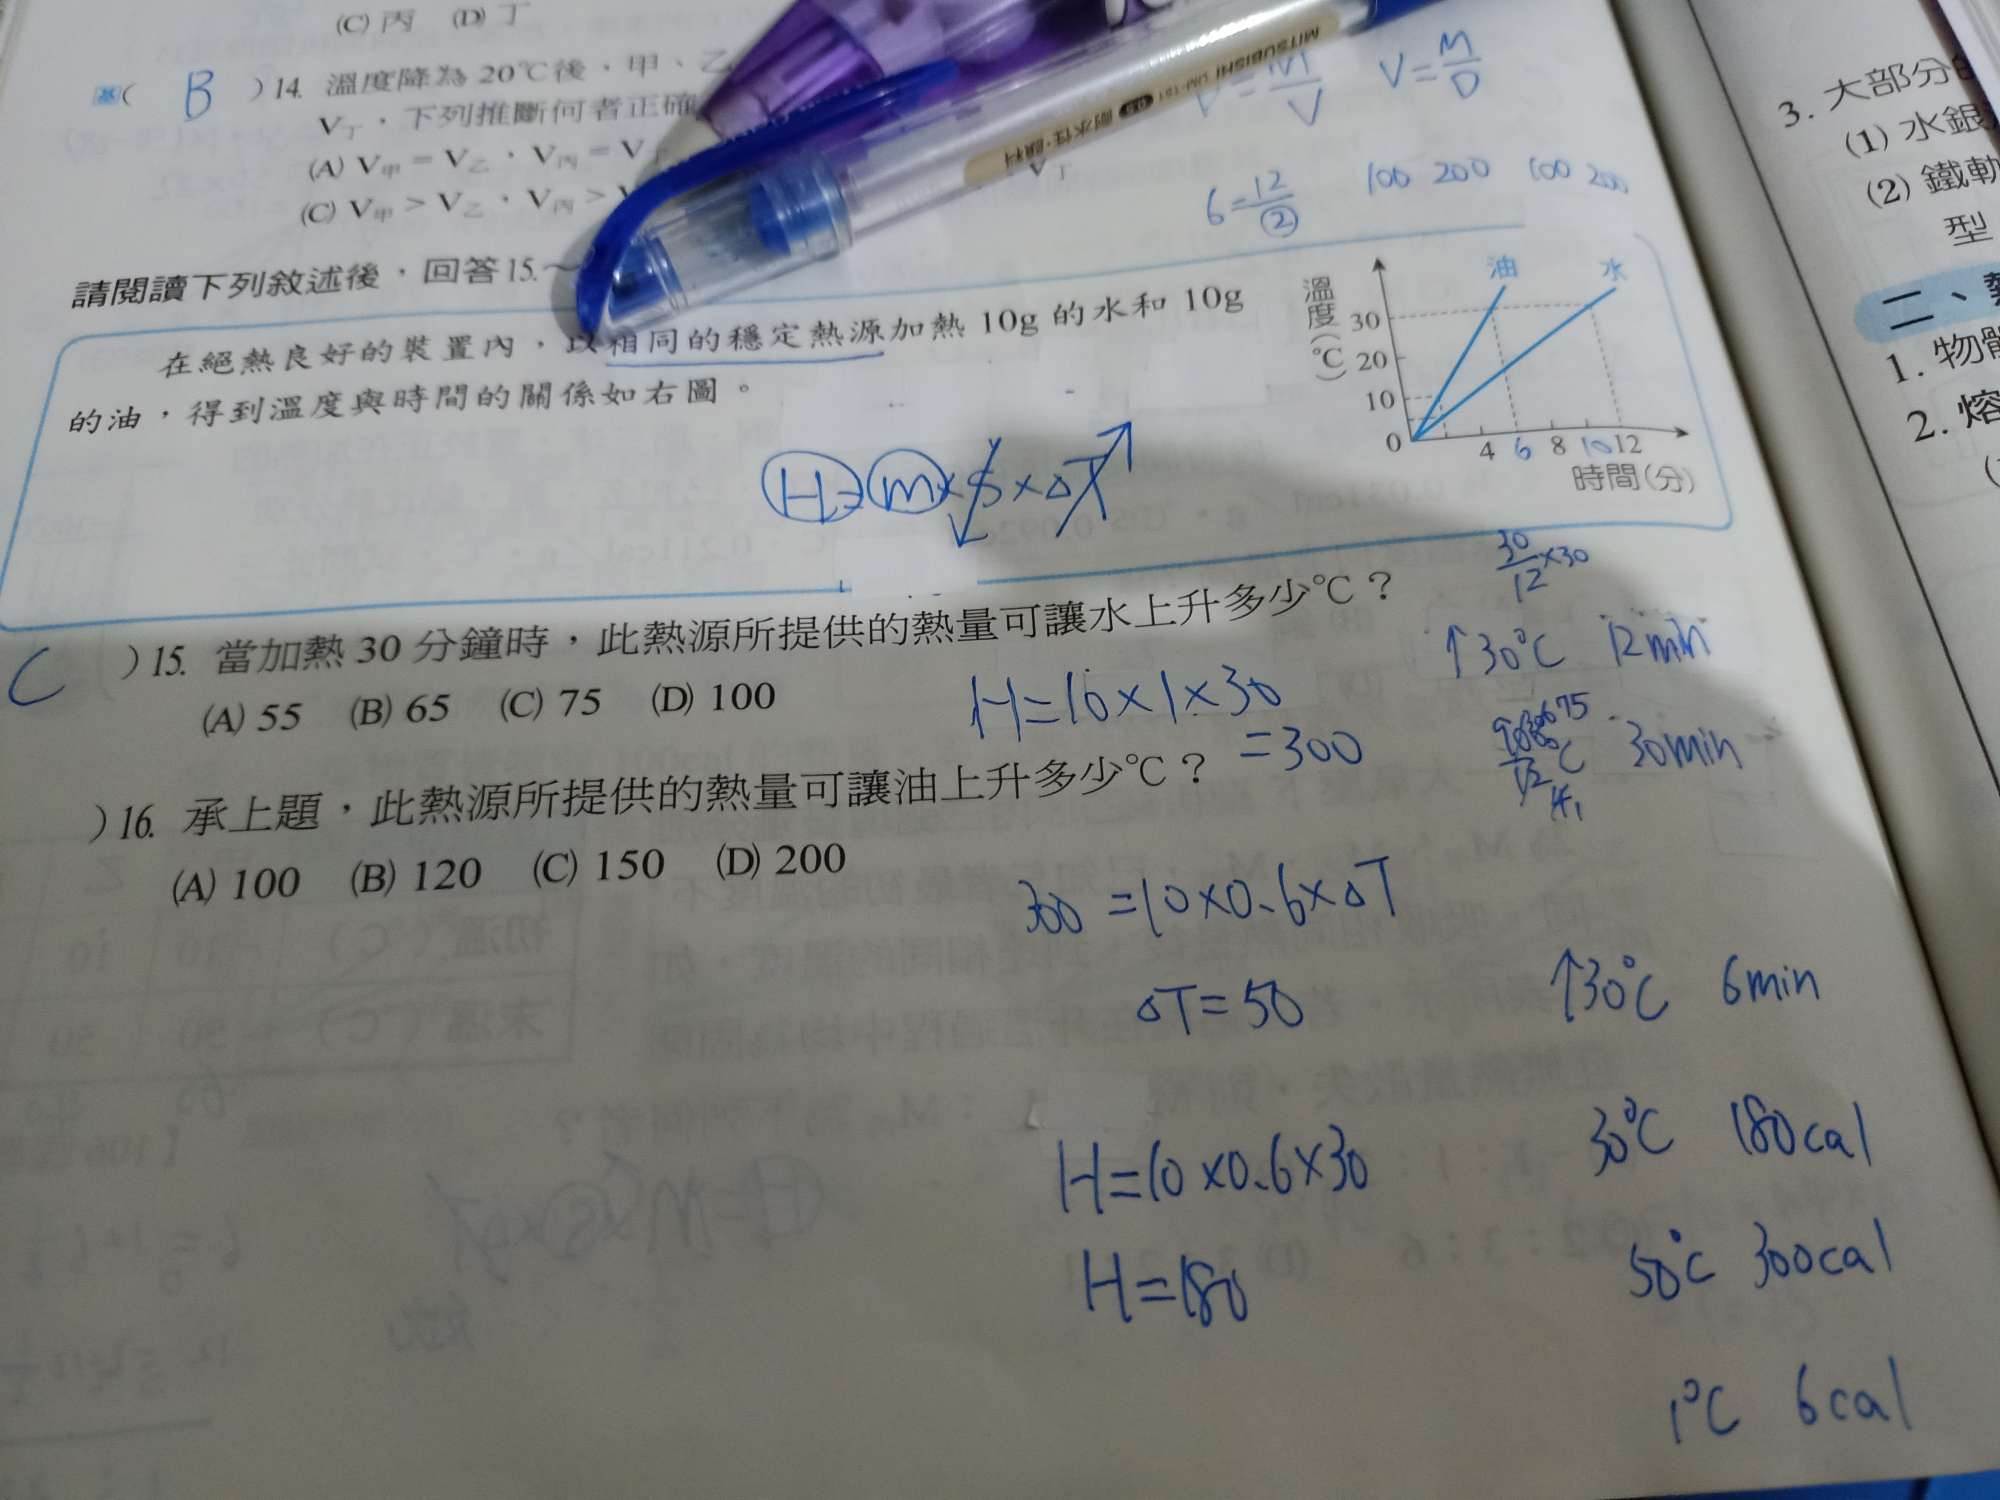 (C) 丙 (D) 丁
基( B )14. 溫度降為20℃後，甲、乙
V丁，下列推斷何者正確
(A) V甲＝V乙，V丙＝V丁
(C) V甲＞V乙，V丙＞V
V丁
MITSUBISHI UM-151 0.5 耐水性・顏料
V=M/V V=M/D
6=12/② 100 200 100 200
請閱讀下列敘述後，回答15.～
在絕熱良好的裝置內，以相同的穩定熱源加熱10g的水和10g
的油，得到溫度與時間的關係如右圖。
溫度(℃)
油 水
30
20
10
0 4 6 8 10 12
時間(分)
H=m×S×△T
C )15. 當加熱30分鐘時，此熱源所提供的熱量可讓水上升多少℃？
(A) 55 (B) 65 (C) 75 (D) 100
30/12×30
↑30℃ 12min
30min
H=10×1×30
=300
)16. 承上題，此熱源所提供的熱量可讓油上升多少℃？
(A) 100 (B) 120 (C) 150 (D) 200
300=10×0.6×△T
△T=50
↑30℃ 6min
H=10×0.6×30
30℃ 180cal
H=180
50℃ 300cal
1℃ 6cal
3. 大部分
(1) 水銀
(2) 鐵軌
型
二、
1. 物體
2. 熔